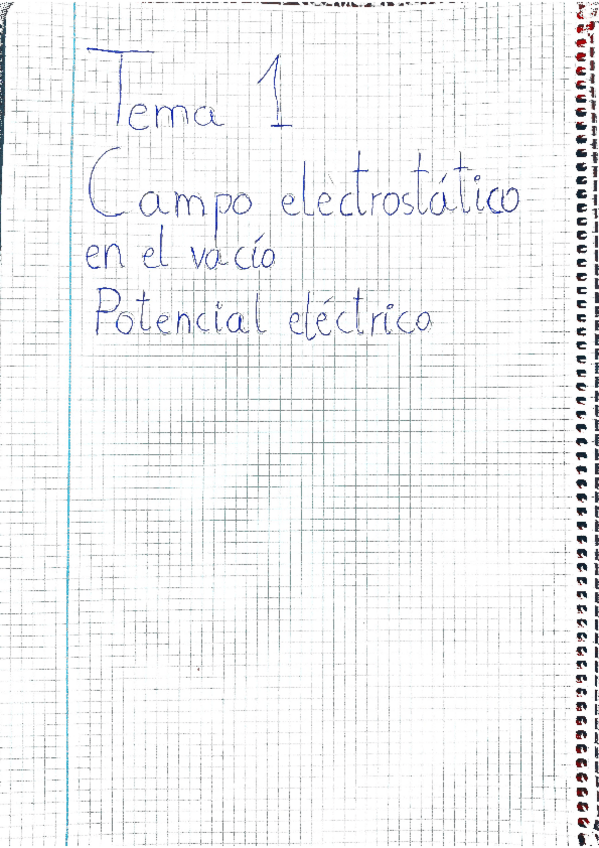 Tema 1
Campo electrostático
en el vacío
Potencial eléctrico